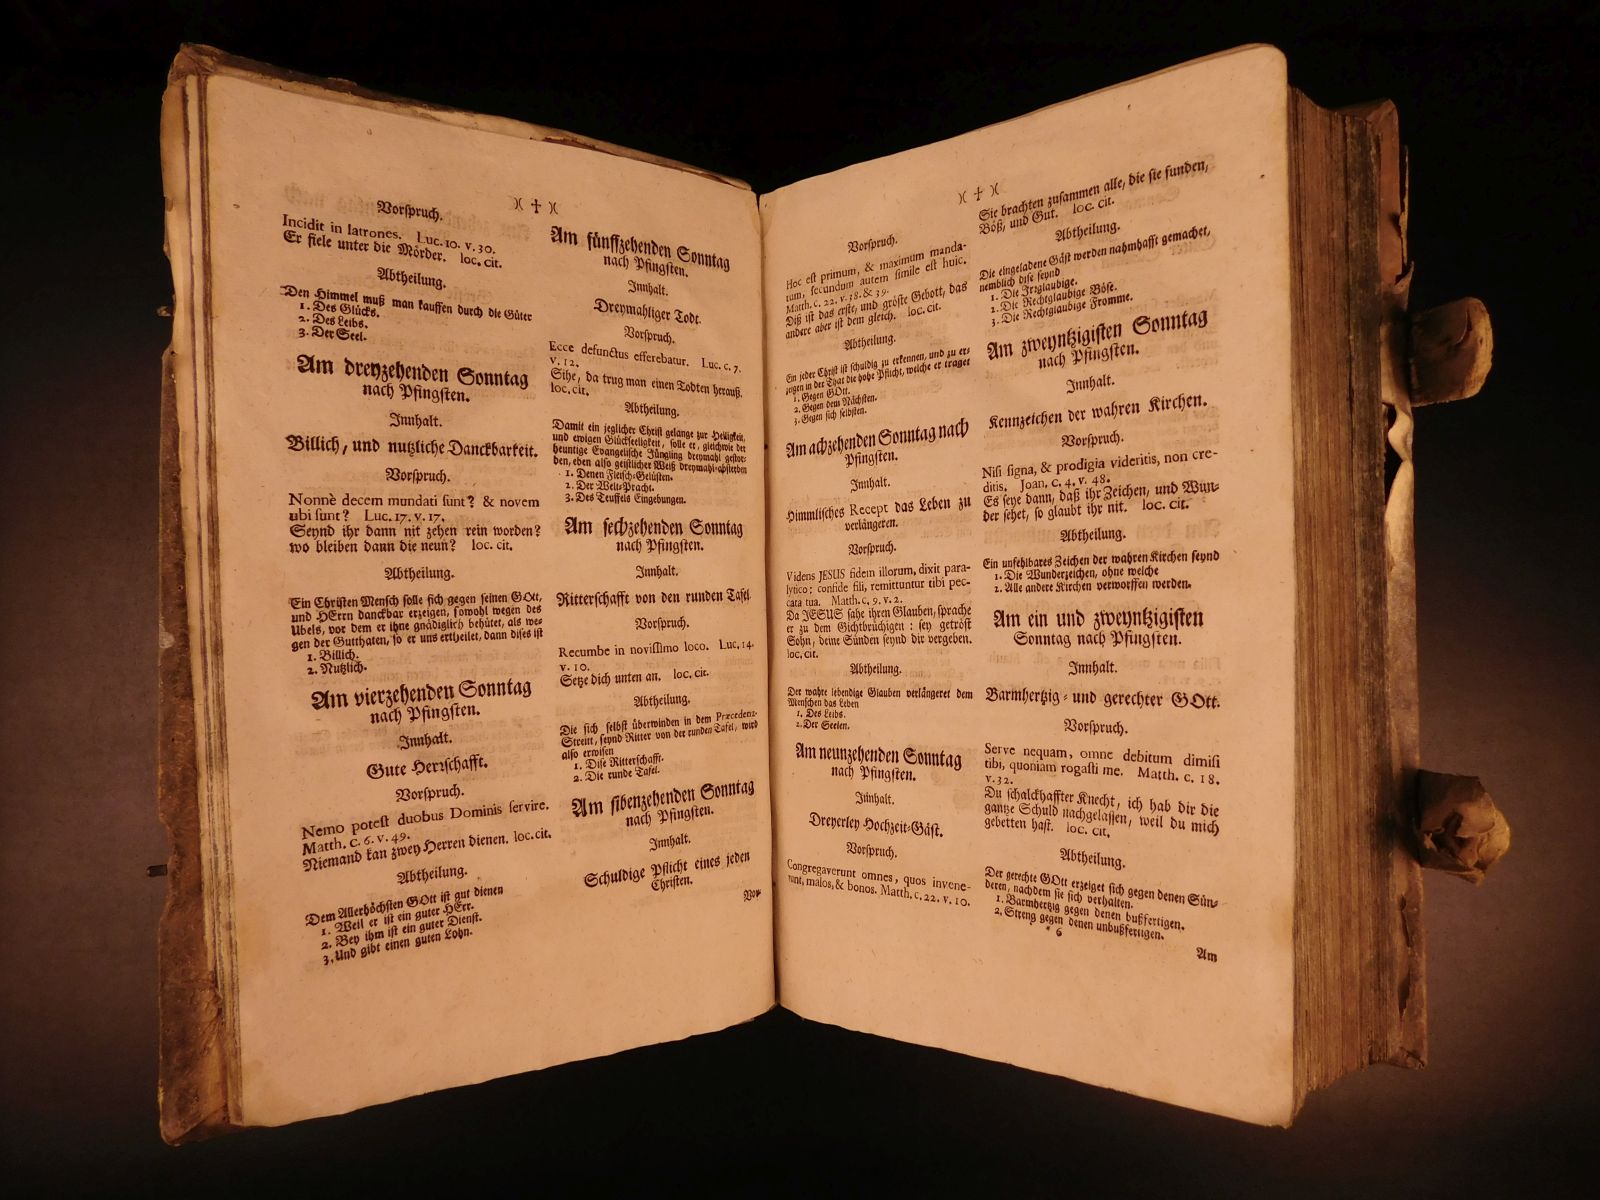 )( † )(
Vorspruch.
Incidit in latrones. Luc. 10. v. 30.
Er fiele unter die Mörder. loc. cit.
Abtheilung.
Den Himmel muß man kauffen durch die Güter
1. Des Glücks.
2. Des Leibs.
3. Der Seel.
Am dreyzehenden Sonntag
nach Pfingsten.
Innhalt.
Billich, und nutzliche Danckbarkeit.
Vorspruch.
Nonnè decem mundati sunt? & novem
ubi sunt? Luc. 17. v. 17.
Seynd ihr dann nit zehen rein worden?
wo bleiben dann die neun? loc. cit.
Abtheilung.
Ein Christen Mensch solle sich gegen seinen GOtt,
und HErrn danckbar erzeigen, sowohl wegen des
Ubels, vor dem er ihne gnädiglich behütet, als we-
gen der Gutthaten, so er uns ertheilet, dann dises ist
1. Billich.
2. Nutzlich.
Am vierzehenden Sonntag
nach Pfingsten.
Innhalt.
Gute Herrschafft.
Vorspruch.
Nemo potest duobus Dominis servire.
Matth. c. 6. v. 49.
Niemand kan zwey Herren dienen. loc. cit.
Abtheilung.
Dem Allerhöchsten GOtt ist gut dienen
1. Weil er ist ein guter HErr.
2. Bey ihm ist ein guter Dienst.
3. Und gibt einen guten Lohn.
Am fünffzehenden Sonntag
nach Pfingsten.
Innhalt.
Dreymahliger Todt.
Vorspruch.
Ecce defunctus efferebatur. Luc. c. 7.
v. 12.
Sihe, da trug man einen Todten herauß.
loc. cit.
Abtheilung.
Damit ein jeglicher Christ gelange zur Heiligkeit,
und ewigen Glückseeligkeit, solle er, gleichwie der
heuntige Evangelische Jüngling dreymahl gestor-
den, eben also geistlicher Weiß dreymahl absterben
1. Denen Fleisch-Gelüsten.
2. Der Welt-Pracht.
3. Des Teuffels Eingebungen.
Am sechzehenden Sonntag
nach Pfingsten.
Innhalt.
Ritterschafft von den runden Tafel
Vorspruch.
Recumbe in novissimo loco. Luc. 14.
v. 10.
Setze dich unten an. loc. cit.
Abtheilung.
Die sich selbst überwinden in dem Præcedenz-
Streitt, seynd Ritter von der runden Tafel, wird
also erwisen
1. Dise Ritterschafft.
2. Die runde Tafel.
Am sibenzehenden Sonntag
nach Pfingsten.
Innhalt.
Schuldige Pflicht eines jeden
Christen.
Vor-
)( † )(
Vorspruch.
Hoc est primum, & maximum manda-
tum, secundum autem simile est huic.
Matth. c. 22. v. 38. & 39.
Diß ist das erste, und gröste Gebott, das
andere aber ist dem gleich. loc. cit.
Abtheilung.
Ein jeder Christ ist schuldig zu erkennen, und zu er-
zeigen in der That die hohe Pflicht, welche er traget
1. Gegen GOtt.
2. Gegen dem Nächsten.
3. Gegen sich selbsten.
Am achzehenden Sonntag nach
Pfingsten.
Innhalt.
Himmlisches Recept das Leben zu
verlängeren.
Vorspruch.
Videns JESUS fidem illorum, dixit para-
lytico: confide fili, remittuntur tibi pec-
cata tua. Matth. c. 9. v. 2.
Da JESUS sahe ihren Glauben, sprache
er zu dem Gichtbrüchigen: sey getröst
Sohn, deine Sünden seynd dir vergeben.
loc. cit.
Abtheilung.
Der wahre lebendige Glauben verlängeret dem
Menschen das Leben
1. Des Leibs.
2. Der Seelen.
Am neunzehenden Sonntag
nach Pfingsten.
Innhalt.
Dreyerley Hochzeit-Gäst.
Vorspruch.
Congregaverunt omnes, quos invene-
runt, malos, & bonos. Matth. c. 22. v. 10.
Sie brachten zusammen alle, die sie funden,
Böß, und Gut. loc. cit.
Abtheilung.
Die eingeladene Gäst werden nahmhafft gemachet,
nemblich dise seynd
1. Die Irrglaubige.
2. Die Rechtglaubige Böse.
3. Die Rechtglaubige Fromme.
Am zweyntzigisten Sonntag
nach Pfingsten.
Innhalt.
Kennzeichen der wahren Kirchen.
Vorspruch.
Nisi signa, & prodigia videritis, non cre-
ditis. Joan. c. 4. v. 48.
Es seye dann, daß ihr Zeichen, und Wun-
der sehet, so glaubt ihr nit. loc. cit.
Abtheilung.
Ein unfehlbares Zeichen der wahren Kirchen seynd
1. Die Wunderzeichen, ohne welche
2. Alle andere Kirchen verworffen werden.
Am ein und zweyntzigisten
Sonntag nach Pfingsten.
Innhalt.
Barmhertzig- und gerechter GOtt.
Vorspruch.
Serve nequam, omne debitum dimisi
tibi, quoniam rogasti me. Matth. c. 18.
v. 32.
Du schalckhaffter Knecht, ich hab dir die
gantze Schuld nachgelassen, weil du mich
gebetten hast. loc. cit.
Abtheilung.
Der gerechte GOtt erzeiget sich gegen denen Sün-
deren, nachdem sie sich verhalten.
1. Barmhertzig gegen denen bußfertigen.
2. Streng gegen denen unbußfertigen.
* 6
Am